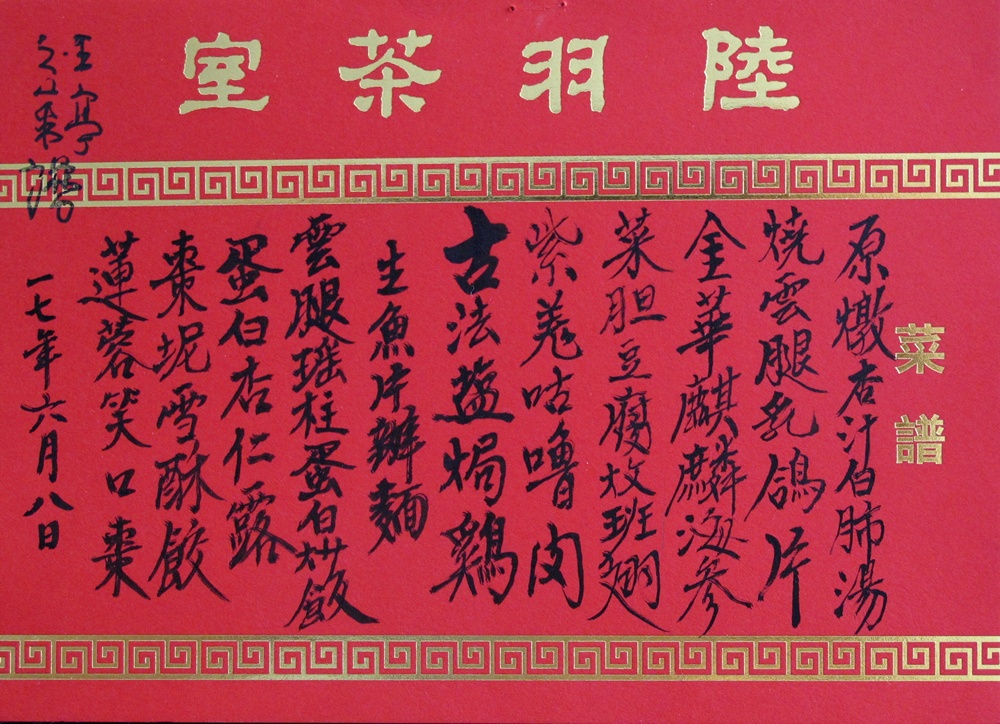 陸羽茶室
菜譜
原燉杏汁白肺湯
燒雲腿乳鴿片
金華麒麟海參
菜胆豆腐炆班翅
紫羗咕嚕肉
古法盬焗鷄
生魚片辦麵
雲腿瑤柱蛋白炒飯
蛋白杏仁露
棗坭雪酥餃
蓮蓉笑口棗
一七年六月八日